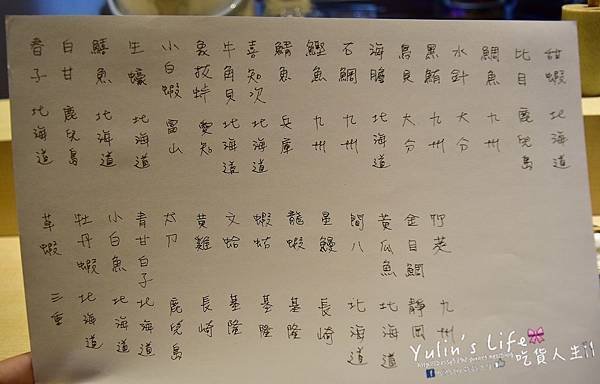 甜蝦 北海道
比目 鹿兒島
鯛魚 九州
水針 大分
黑鮪 九州
島貝 大分
海膽 北海道
石鯛 九州
鰹魚 九州
鯖魚 兵庫
喜知次 北海道
牛角貝 北海道
象拔特 愛知
小白蝦 富山
生蠔 北海道
鱈魚 北海道
白甘 鹿兒島
春子 北海道
竹莢 九州
金目鯛 靜岡
黃瓜魚 北海道
間八 北海道
星鰻 長崎
龍蝦 基隆
蝦蛄 基隆
文蛤 基隆
黃雞 長崎
太刀 鹿兒島
青甘白子 北海道
小白魚 北海道
牡丹蝦 北海道
草蝦 三重
Yulin's Life
吃貨人生!!